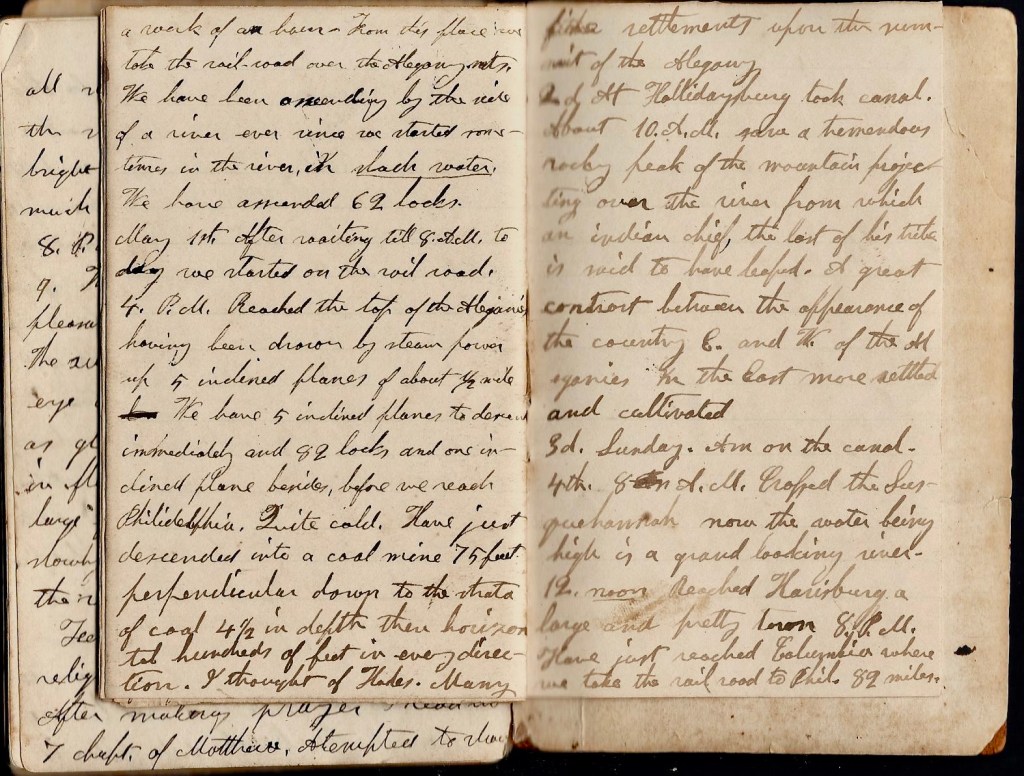 a work of an hour - From this place we
take the rail-road over the Alegany mts.
We have been ascending by the side
of a river ever since we started some-
times in the river, in slack water.
We have assended 62 locks.
May 1st. After waiting till 8. A.M. to
day we started on the rail road.
4. P.M. Reached the top of the Aleganies
having been drawn by steam power
up 5 inclined planes of about 1/2 mile
We have 5 inclined planes to descend
immediately and 82 locks and one in-
clined plane besides, before we reach
Philidelphia. Quite cold. Have just
descended into a coal mine 75 feet
perpendicular down to the strata
of coal 4 1/2 in depth then horizon
tal hundreds of feet in every direc-
tion. I thought of Hades. Many
settlements upon the sum-
mit of the Alegany
2d. At Hollidaysburg took canal.
About 10. A.M. saw a tremendous
rocky peak of the mountain projec-
ting over the river from which
an indian chief, the last of his tribe
is said to have leaped. A great
contrast between the appearance of
the country E. and W. of the Al
eganies in the East more settled
and cultivated
3d. Sunday. Am on the canal.
4th. 8 A.M. Crossed the Sus-
quehannah now the water being
high is a grand looking river.
12. noon Reached Harisburg a
large and pretty town 8. P.M.
Have just reached Columbia where
we take the rail road to Phil. 82 miles.
all
the
bright
much
8. P.
9.
pleasa
The
eye
as gl
in fl
large
slowly
the
relig
After making prayer
7 chapt. of Matthew. Atempted to